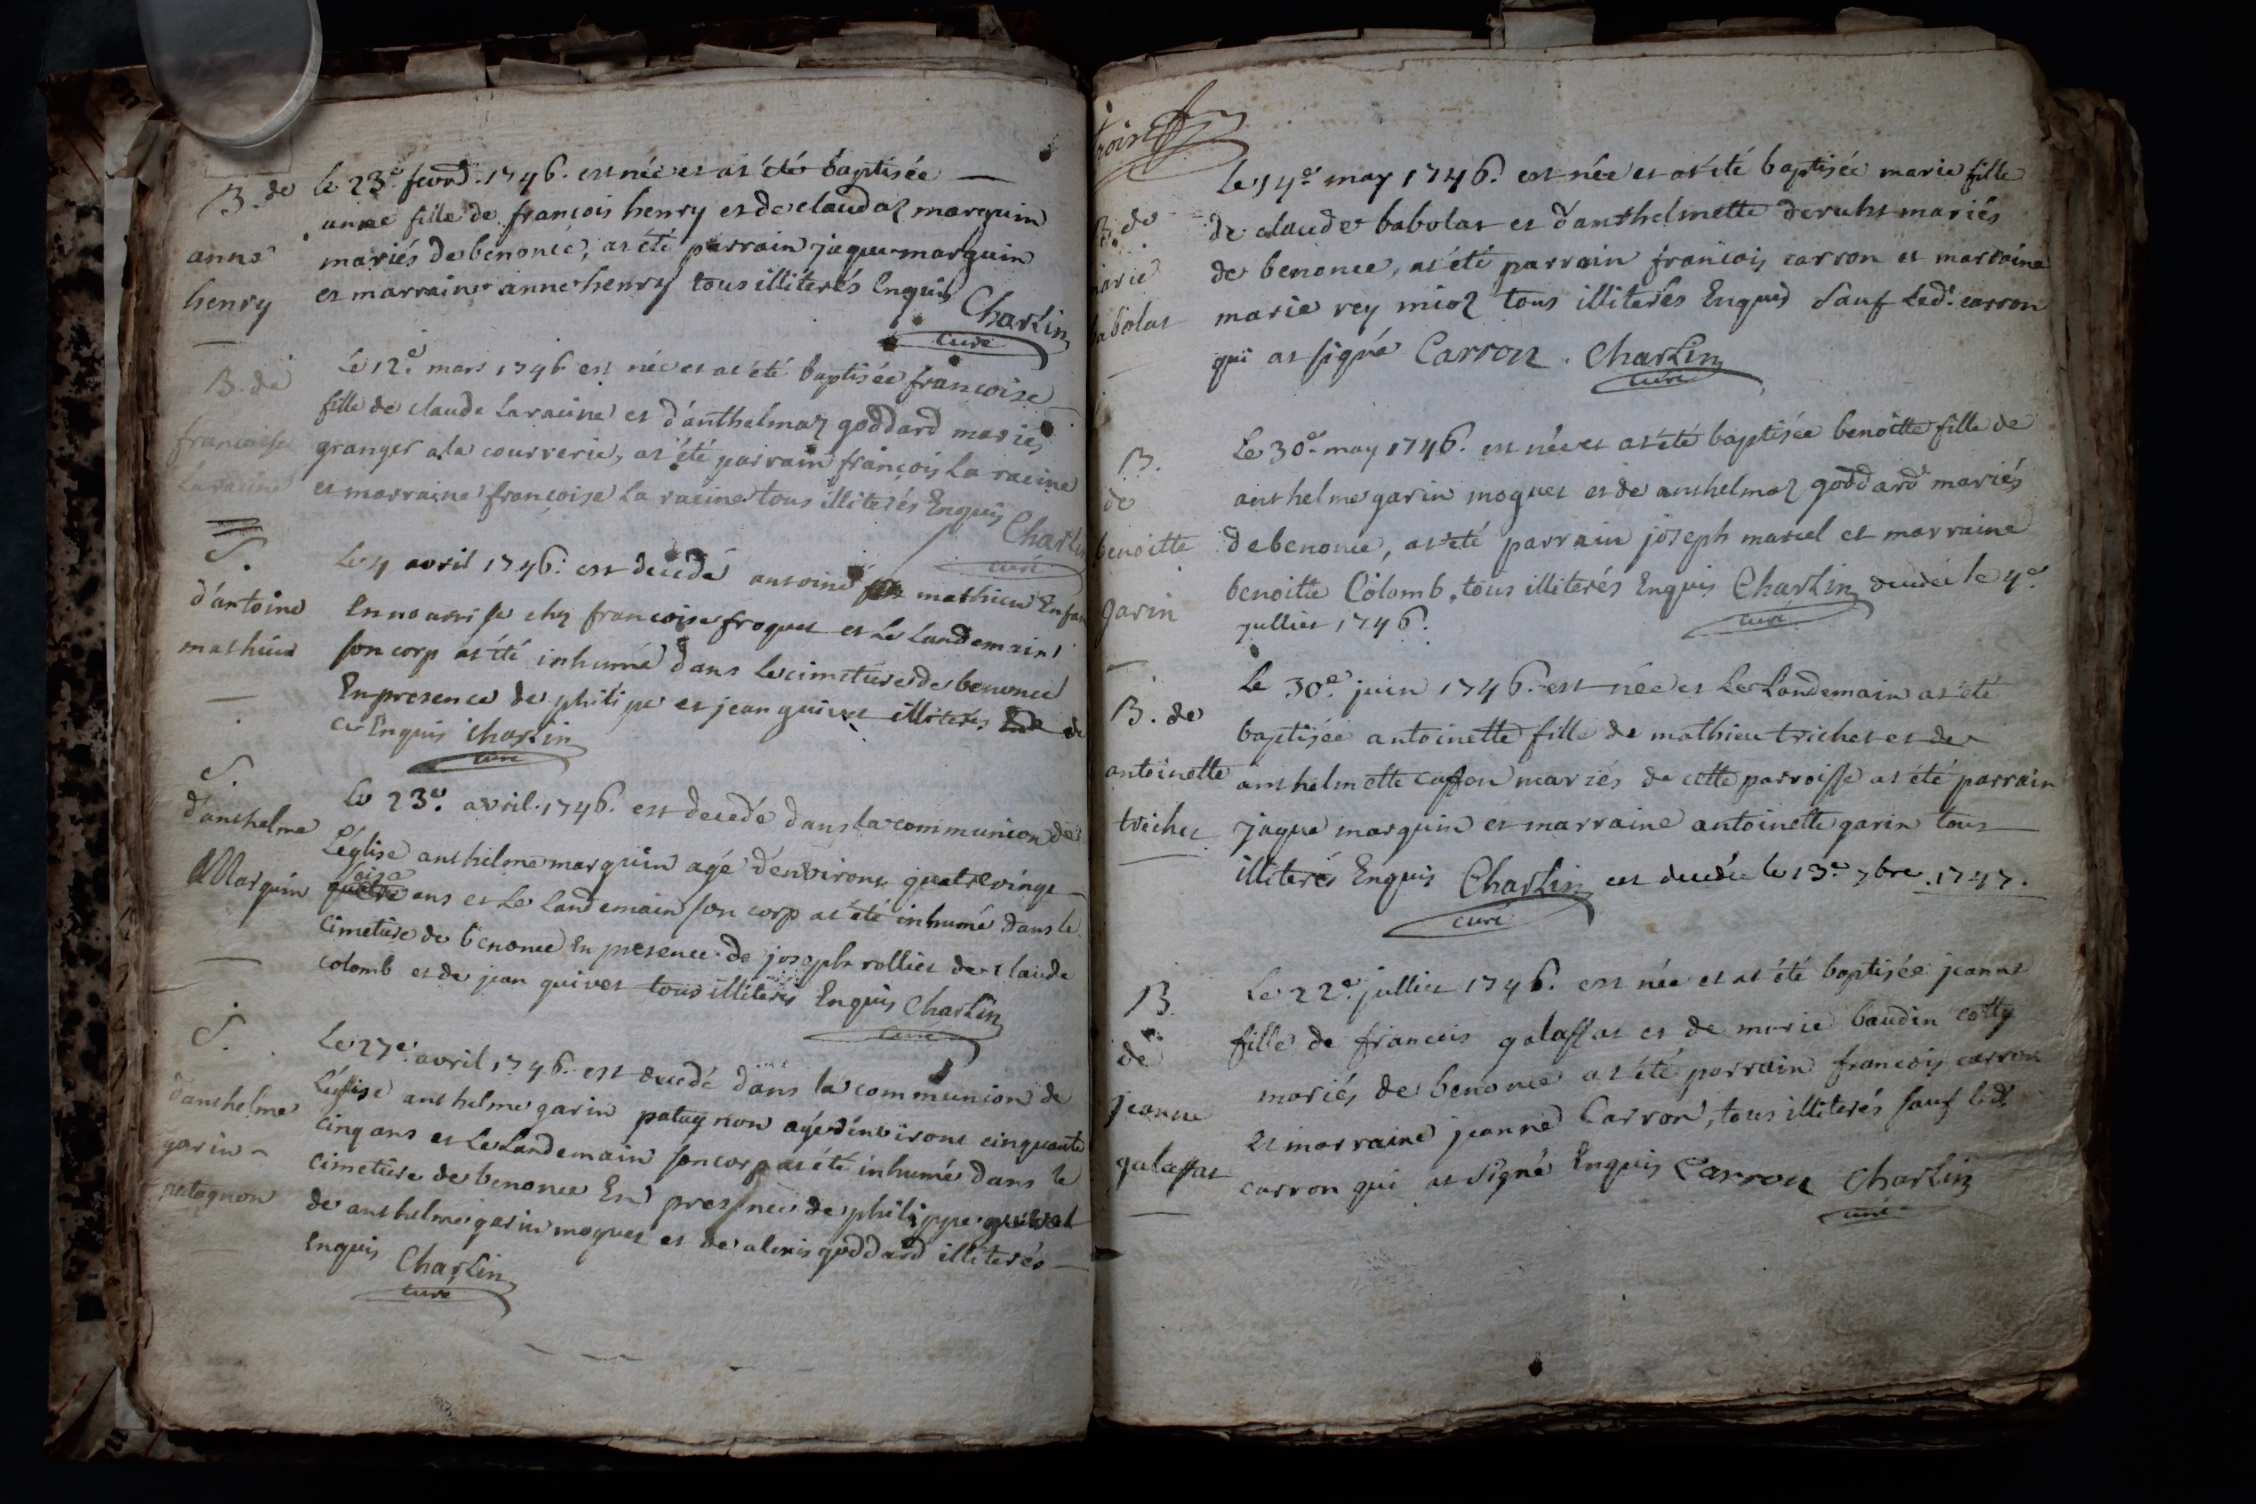 B. de
anne
henry
le 23e fevrd. 1746. est née et at été baptisée
anne fille de francois henry et de claudaz marquin
mariés de benonce, at été parrain jaque marquin
et marraine anne henry tous illiterés Enquis Charlin
curé
B. de
francoise
Laracine
Le 12e. mars 1746 est née et at été baptisée francoise
fille de claude Laracine et d'anthelmaz goddard mariés
granger a la courrerie, at été parrain françois La racine
et marraine françoise La racine tous illiterés Enquis
Charlin
curé
S.
d'antoine
mathieu
Le 4 avril 1746. est decedé antoine mathieu Enfant
En nourrisse chz francoise froquet et Le Landemain
son corp at été inhumé dans le cimetiere de benonce
En presence de philipe et jean quivet illiterés de
ce Enquis Charlin
curé
S.
d'anthelme
Marquin
Le 23e. avril. 1746. est decedé dans la communion de
L'église anthelme marquin agé d'environt quatrevingt
seize
quatre ans et Le Landemain son corp at été inhumé dans le
cimetiere de benonce En presence de joseph rollier de claude
colomb et de jean quivet tous illiterés Enquis Charlin
curé
S.
d'anthelme
garin
patagnon
Le 27e. avril 1746. est decedé dans la communion de
L'église anthelme garin patagnon agé d'environt cinquante
cinq ans et Le Landemain son corp at été inhumé dans le
cimetiere de benonce En presence de philippe quivet
de anthelme garin moquet et de alexis goddard illiterés
Enquis Charlin
curé
B. de
marie
babolat
Le 14e may 1746. est née et at été baptisée marie fille
de claude babolat et d'anthelmette deruht mariés
de benonce, at été parrain francois carron et marraine
marie rey mioz tous illiterés Enquis Sauf Ledt. carron
qui at signé Carron. Charlin
curé
B.
de
benoitte
garin
Le 30e. may 1746. est née et at été baptisée benoitte fille de
anthelme garin moquet et de anthelmaz goddard mariés
de benonce, at été parrain joseph marcel et marraine
benoitte Colomb, tous illiterés Enquis Charlin decedée le 4e
curé
jullier 1746.
B. de
antoinette
trichet
Le 30e. juin 1746. est née et Le Landemain at été
baptisée antoinette fille de mathieu trichet et de
anthelmette cusson mariés de cette parroisse at été parrain
jaque marquin et marraine antoinette garin tous
illiterés Enquis Charlin est decedée le 13e 7bre. 1747.
curé
B.
de
jeanne
galaffat
Le 22e. jullier 1746. est née et at été baptisée jeanne
fille de francois galaffat et de marie baudin cotty
mariés de benonce at été parrain francois carron
et marraine jeanne Carron, tous illiterés sauf ledt
carron qui at signé Enquis Carron Charlin
curé